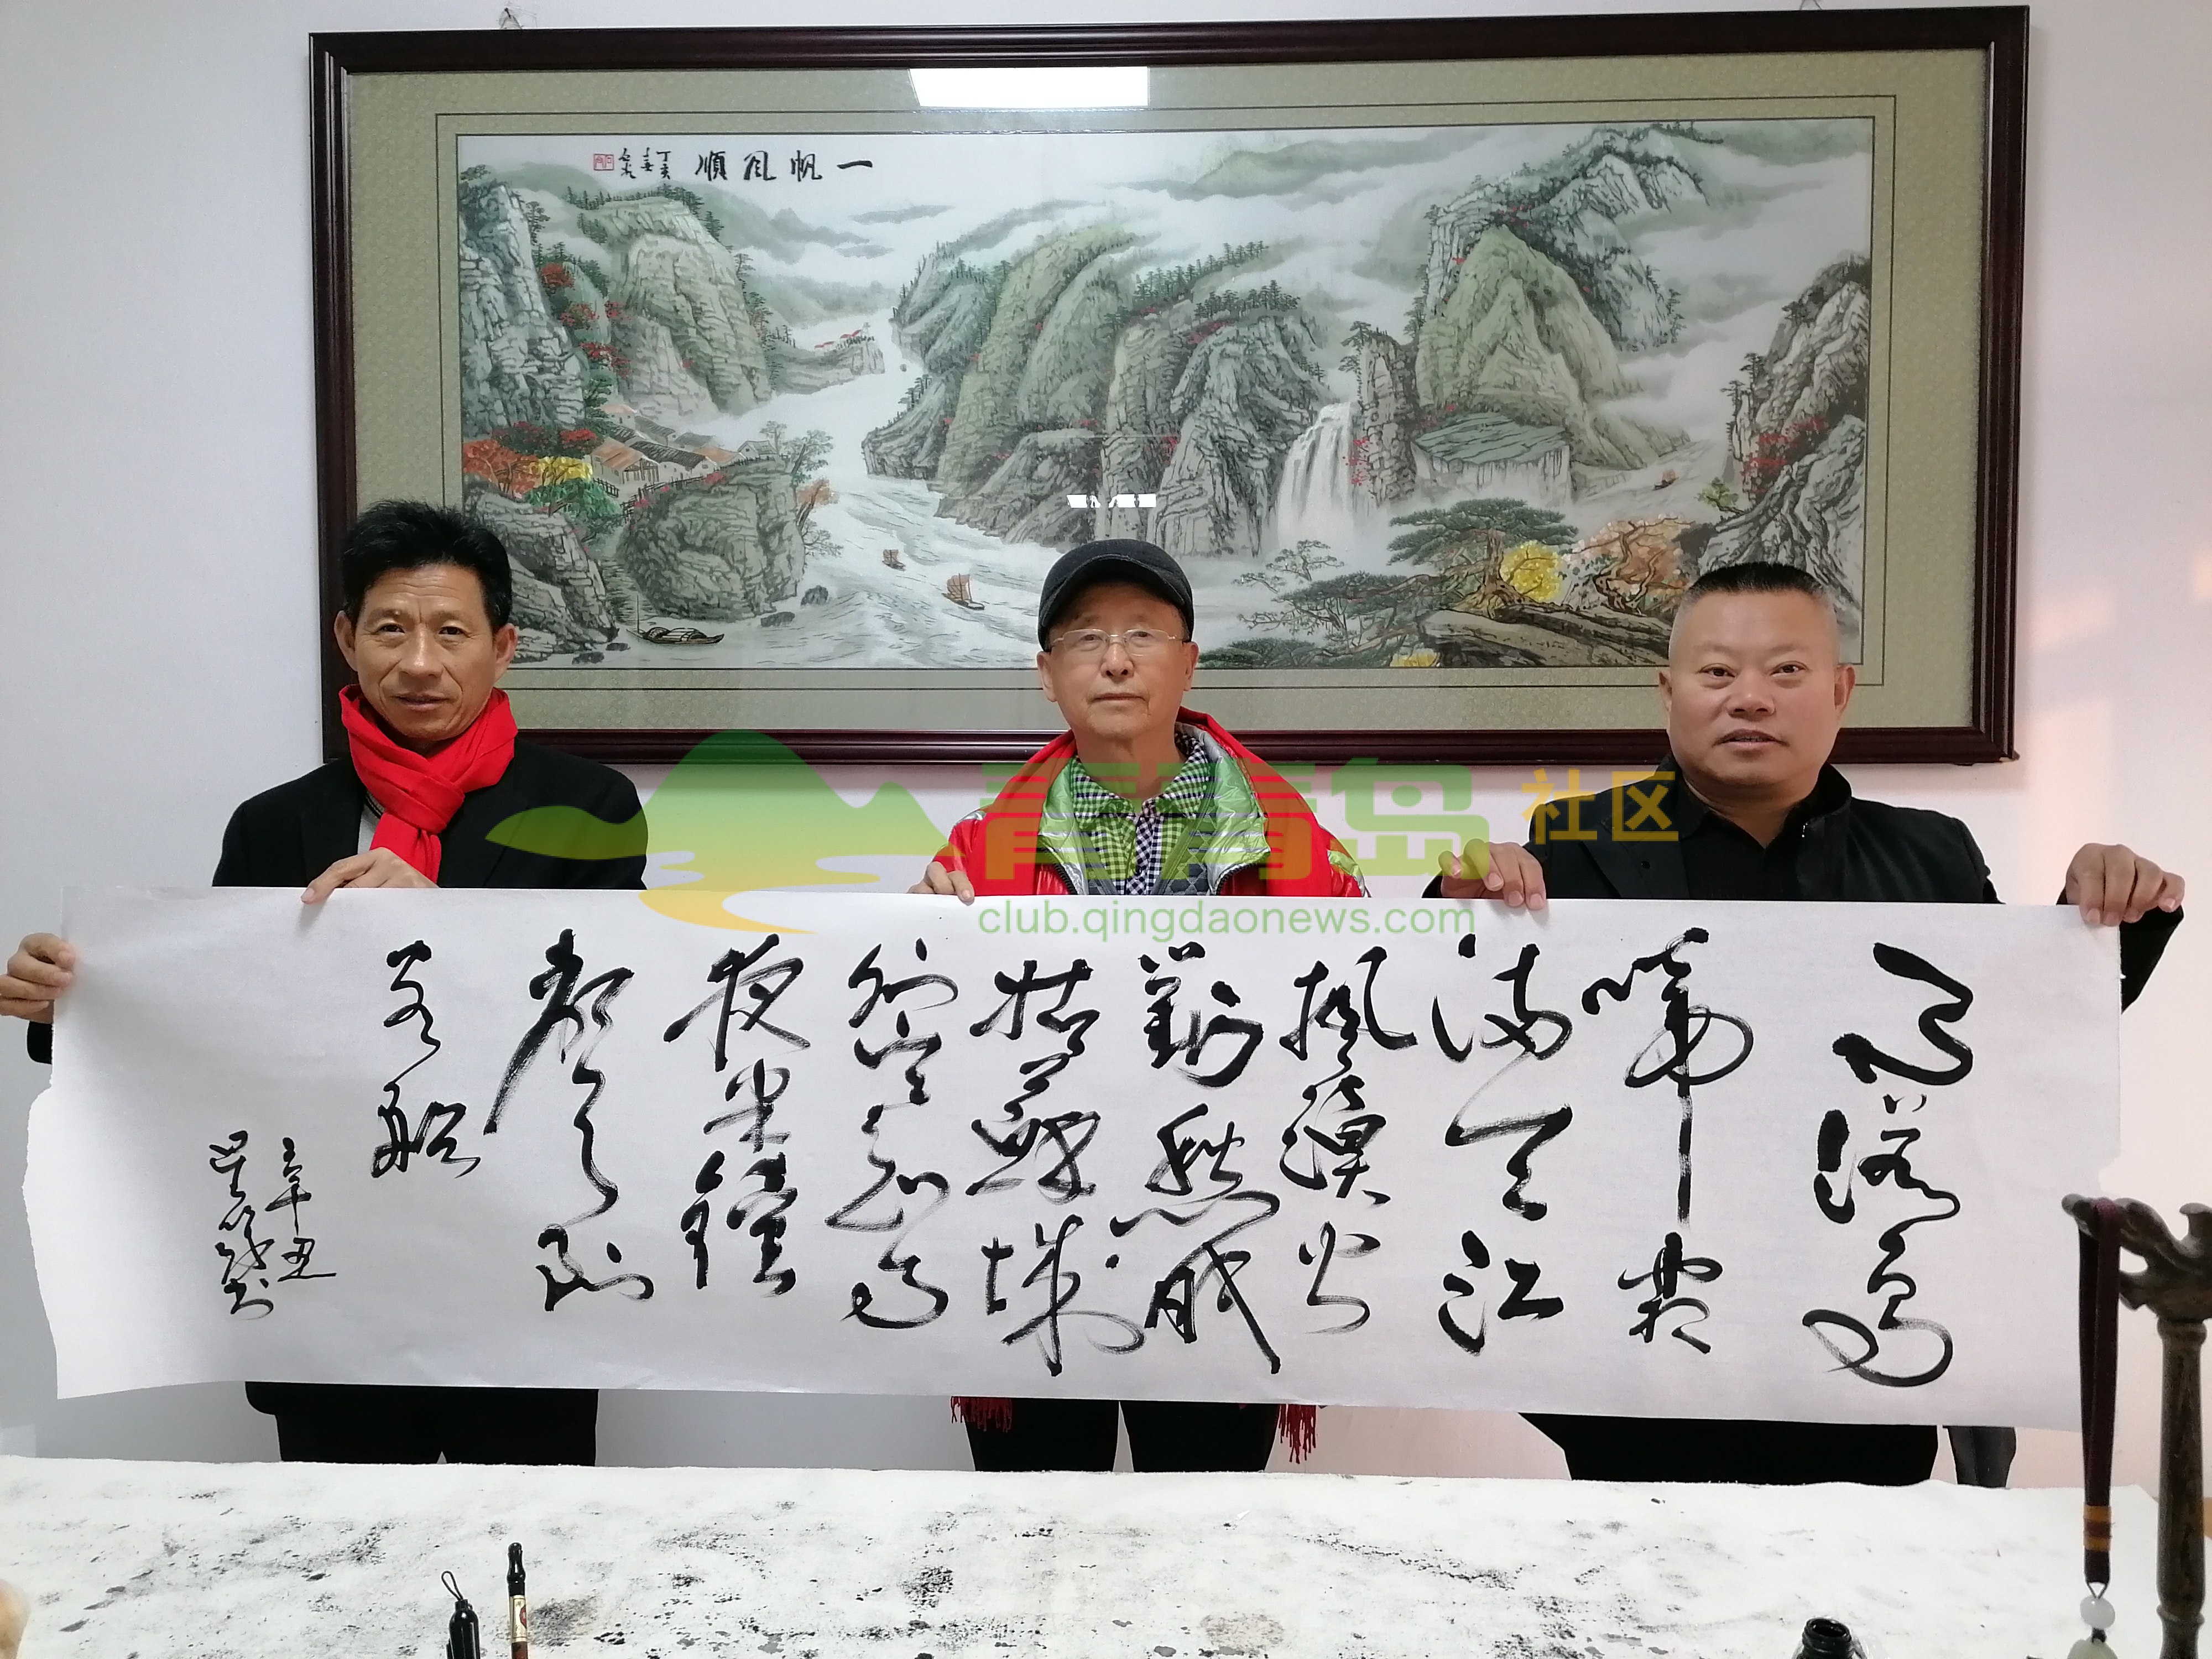 一帆風順
丁亥
青青岛社区
club.qingdaonews.com
月落烏
啼霜
滿天江
楓漁火
對愁眠
姑蘇城
外寒山寺
夜半鐘
聲到
客船
辛丑